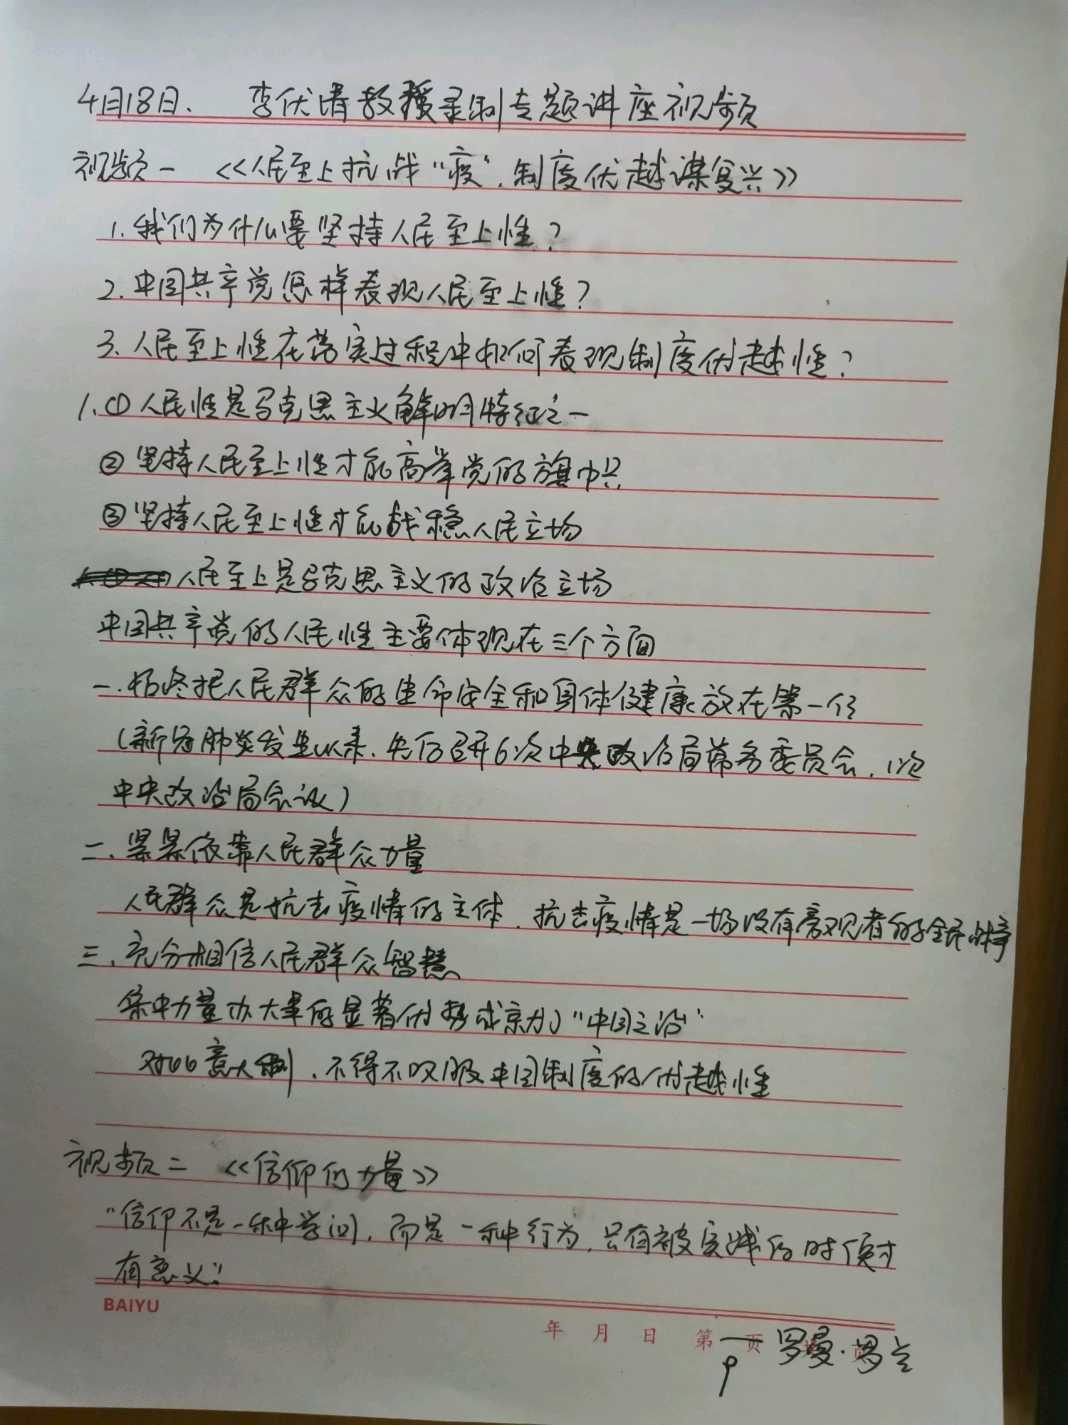 4月18日、 李伏清教授录制专题讲座视频
视频一 《人民至上抗战"疫",制度优越谋复兴》
1.我们为什么要坚持人民至上性?
2.中国共产党怎样表现人民至上性?
3.人民至上性在落实过程中如何表现制度优越性?
1.①人民性是马克思主义鲜明特征之一
②坚持人民至上性才能高举党的旗帜
③坚持人民至上性才能战稳人民立场
人民至上是马克思主义的政治立场
中国共产党的人民性主要体现在三个方面
一.始终把人民群众的生命安全和身体健康放在第一位
(新冠肺炎发生以来,先后召开6次中央政治局常务委员会,1次
中央政治局会议)
二、紧紧依靠人民群众力量
人民群众是抗击疫情的主体,抗击疫情是一场没有旁观者的全民战争
三、充分相信人民群众智慧
集中力量办大事的显著优势成就了"中国之治"
对比意大利,不得不叹服中国制度的优越性
视频二 《信仰的力量》
"信仰不是一种学问,而是一种行为,只有被实践的时候才
有意义"
BAIYU
年 月 日 第 页
一罗曼·罗兰